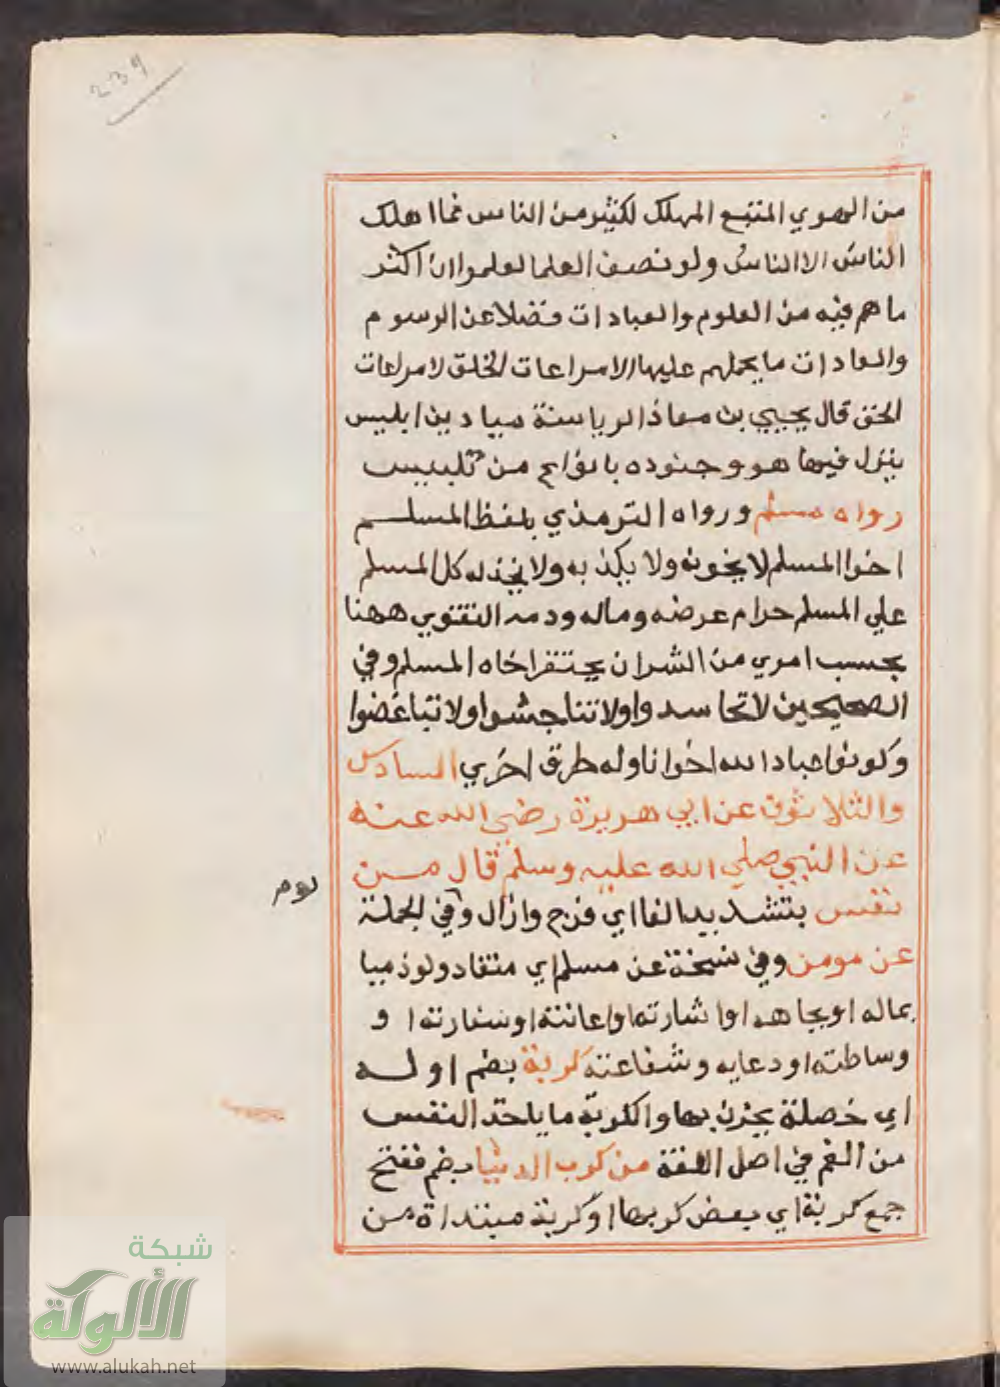 239
من الهوي المتبع المهلك لكثير من الناس فما اهلك
الناس الا الناس ولو نصف العلما لعلموا ان اكثر
ما هم فيه من العلوم والعبادات فضلا عن الرسوم
والعادات ما يحملهم عليها الا مراعات الخلق لا مراعات
الحق قال يحيي بن معاذ الرياسة ميادين ابليس
ينزل فيها هو وجنوده بانواع من تلبيس
رواه مسلم ورواه الترمذي بلفظ المسلم
اخوا المسلم لا يخونه ولا يكذبه ولا يخذله كل المسلم
علي المسلم حرام عرضه وماله ودمه التقوي ههنا
بحسب امري من الشر ان يحتقر اخاه المسلم وفي
الصحيحين لا تحاسدوا ولا تناجشوا ولا تباغضوا
وكونوا عباد الله اخوانا وله طرق اخري السادس
والثلاثون عن ابي هريرة رضي الله عنه
عن النبي صلي الله عليه وسلم قال من
نفس بتشديد الفا اي فرج وازال وفي الجملة
عن مومن وفي نسخة عن مسلم اي منقاد ولو ذميا
بماله او بجاهه او اشارته او اعانته او سفارته او
وساطته او دعايه وشفاعته كربة بضم اوله
اي خصلة يحزن بها والكربة ما ياخذ النفس
من الغم في اصل اللغة من كرب الدنيا بضم ففتح
جمع كربة اي بعض كربها او كربة مبتداة من
شبكة
الألوكة
www.alukah.net